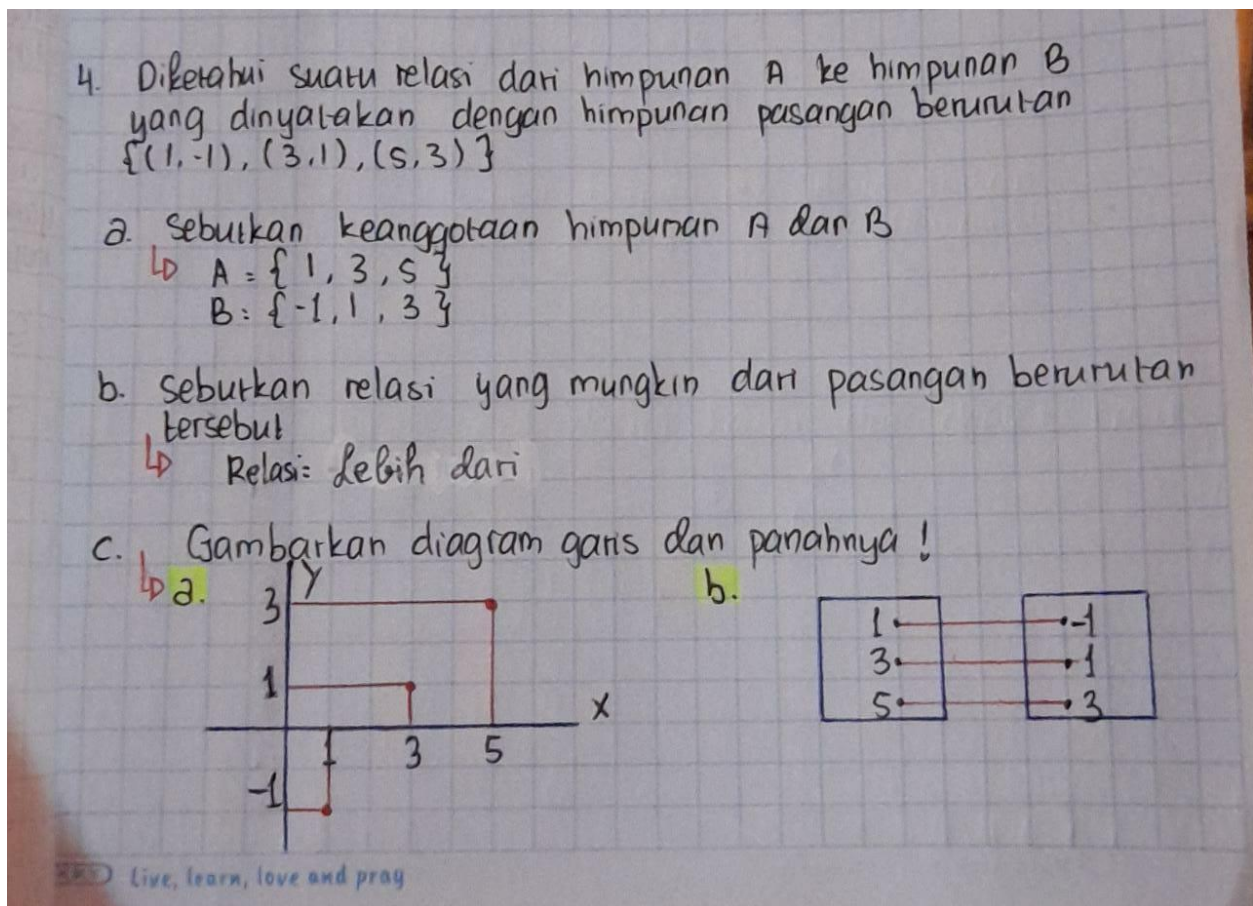 4. Diketahui suatu relasi dari himpunan A ke himpunan B
yang dinyatakan dengan himpunan pasangan berurutan
{(1,-1), (3,1), (5,3)}
a. Sebutkan keanggotaan himpunan A dan B
A = {1, 3, 5}
B : {-1, 1, 3}
b. Sebutkan relasi yang mungkin dari pasangan berurutan
tersebut
Relasi: Lebih dari
c. Gambarkan diagram garis dan panahnya !
a.
y
3
1
x
1 3 5
-1
b.
1 -1
3 1
5 3
Live, learn, love and pray